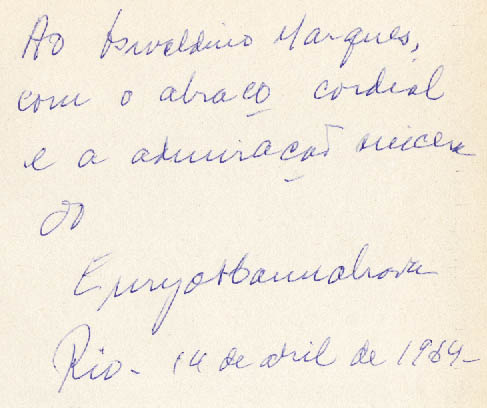 Ao Osvaldino Marques,
com o abraço cordial
e a admiração sincera
do
Eurya Hannabrava
Rio - 14 de abril de 1964 -